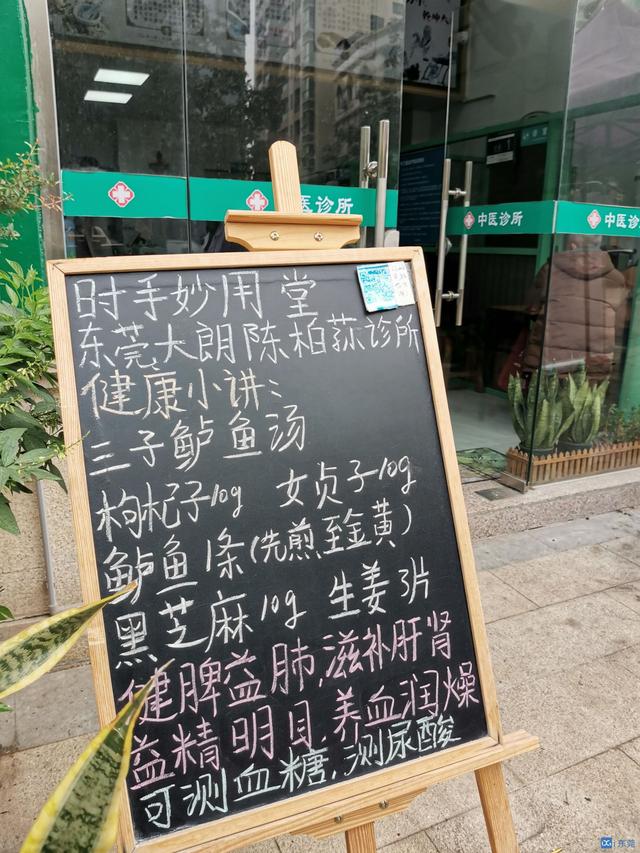 中医诊所
中医诊所
中医诊
时手妙用堂
东莞大朗陈柏荪诊所
健康小讲:
三子鲈鱼汤
枸杞子10g 女贞子10g
鲈鱼1条(先煎至金黄)
黑芝麻10g 生姜3片
健脾益肺,滋补肝肾
益精明目,养血润燥
可测血糖,测尿酸
东莞